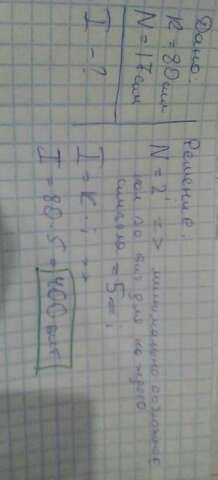 Дано:
K = 80 сим
N = 17 сим
I - ?
Решение:
N = 2ⁱ => минимально возможное
кол-во бит для каждого
символа = 5 = i
I = K · i =>
I = 80 · 5 = 400 бит